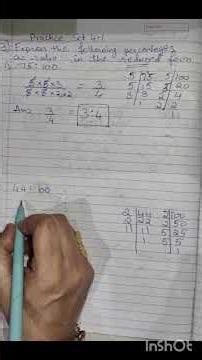 Practice Set 4.1
3) Express the following percentages
as ratio in the reduced form
1) 75:100
5 × 5 × 3 / 5 × 5 × 2 × 2 = 3/4
5 75 5 100
5 15 5 20
3 3 2 4
1 2 2
1
Ans 3/4 = 3:4
44:100
2 44 2 100
2 22 2 50
11 11 5 25
1 5 5
1
InShOt